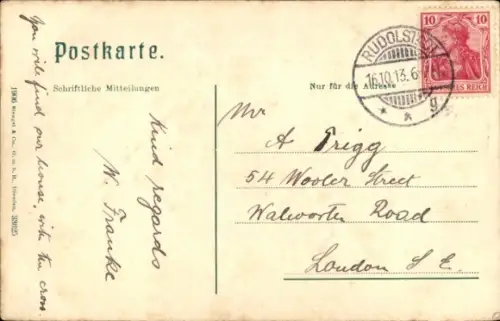 Postkarte.
Schriftliche Mitteilungen
Nur für die Adresse
You will find our house, with the cross
Kind regards
W. Franke
1906 Stengel & Co., G.m.b.H., Dresden 33625
RUDOLSTADT
16.10.13.6
* * g
10 10
REICH
Mr
A Trigg
54 Wooler Street
Walworth Road
London S E.